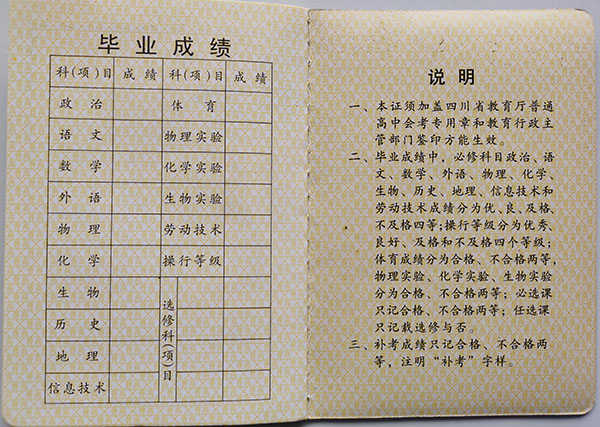 毕业成绩
科(项)目 成绩 科(项)目 成绩
政治 体育
语文 物理实验
数学 化学实验
外语 生物实验
物理 劳动技术
化学 操行等级
生物 选修科(项)目
历史
地理
信息技术
说明
一、本证须加盖四川省教育厅普通
高中会考专用章和教育行政主
管部门签印方能生效。
二、毕业成绩中，必修科目政治、语
文、数学、外语、物理、化学、
生物、历史、地理、信息技术和
劳动技术成绩分为优、良、及格、
不及格四等;操行等级分为优秀、
良好、及格和不及格四个等级;
体育成绩分为合格、不合格两等，
物理实验、化学实验、生物实验
分为合格、不合格两等；必选课
只记合格、不合格两等；任选课
只记载选修与否。
三、补考成绩只记合格、不合格两
等，注明“补考”字样。